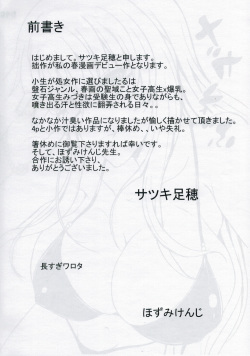 前書き
はじめまして。サツキ足穂と申します。
拙作が私の春漫画デビュー作となります。
小生が処女作に選びましたるは
盤石ジャンル、春画の聖域こと女子高生×爆乳。
女子高生みづきは受験生の身でありながらも、
噴き出る汗と性欲に翻弄される日々。。
なかなか汁臭い作品になりましたが愉しく描かせて頂きました。
4pと小作ではありますが、棒休め、、いや失礼。
箸休めに御覧下さりますれば幸いです。
そして、ほずみけんじ先生。
合作にお誘い下さり、
ありがとうございました。
サツキ足穂
長すぎワロタ
ほずみけんじ